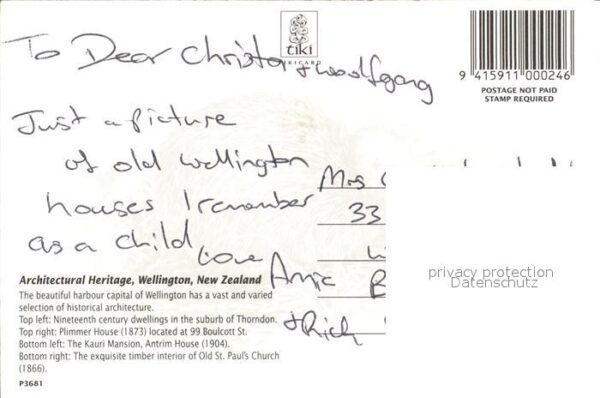 tiki
To Dear Christa
+ Woolfgang
9 415911 000246
POSTAGE NOT PAID
STAMP REQUIRED
Just a picture
of old Wellington
houses I remember
as a child
Love
+ Rich
Mrs
33
B
Architectural Heritage, Wellington, New Zealand
The beautiful harbour capital of Wellington has a vast and varied
selection of historical architecture.
Top left: Nineteenth century dwellings in the suburb of Thorndon.
Top right: Plimmer House (1873) located at 99 Boulcott St.
Bottom left: The Kauri Mansion, Antrim House (1904).
Bottom right: The exquisite timber interior of Old St. Paul's Church
(1866).
P3681
privacy protection
Datenschutz